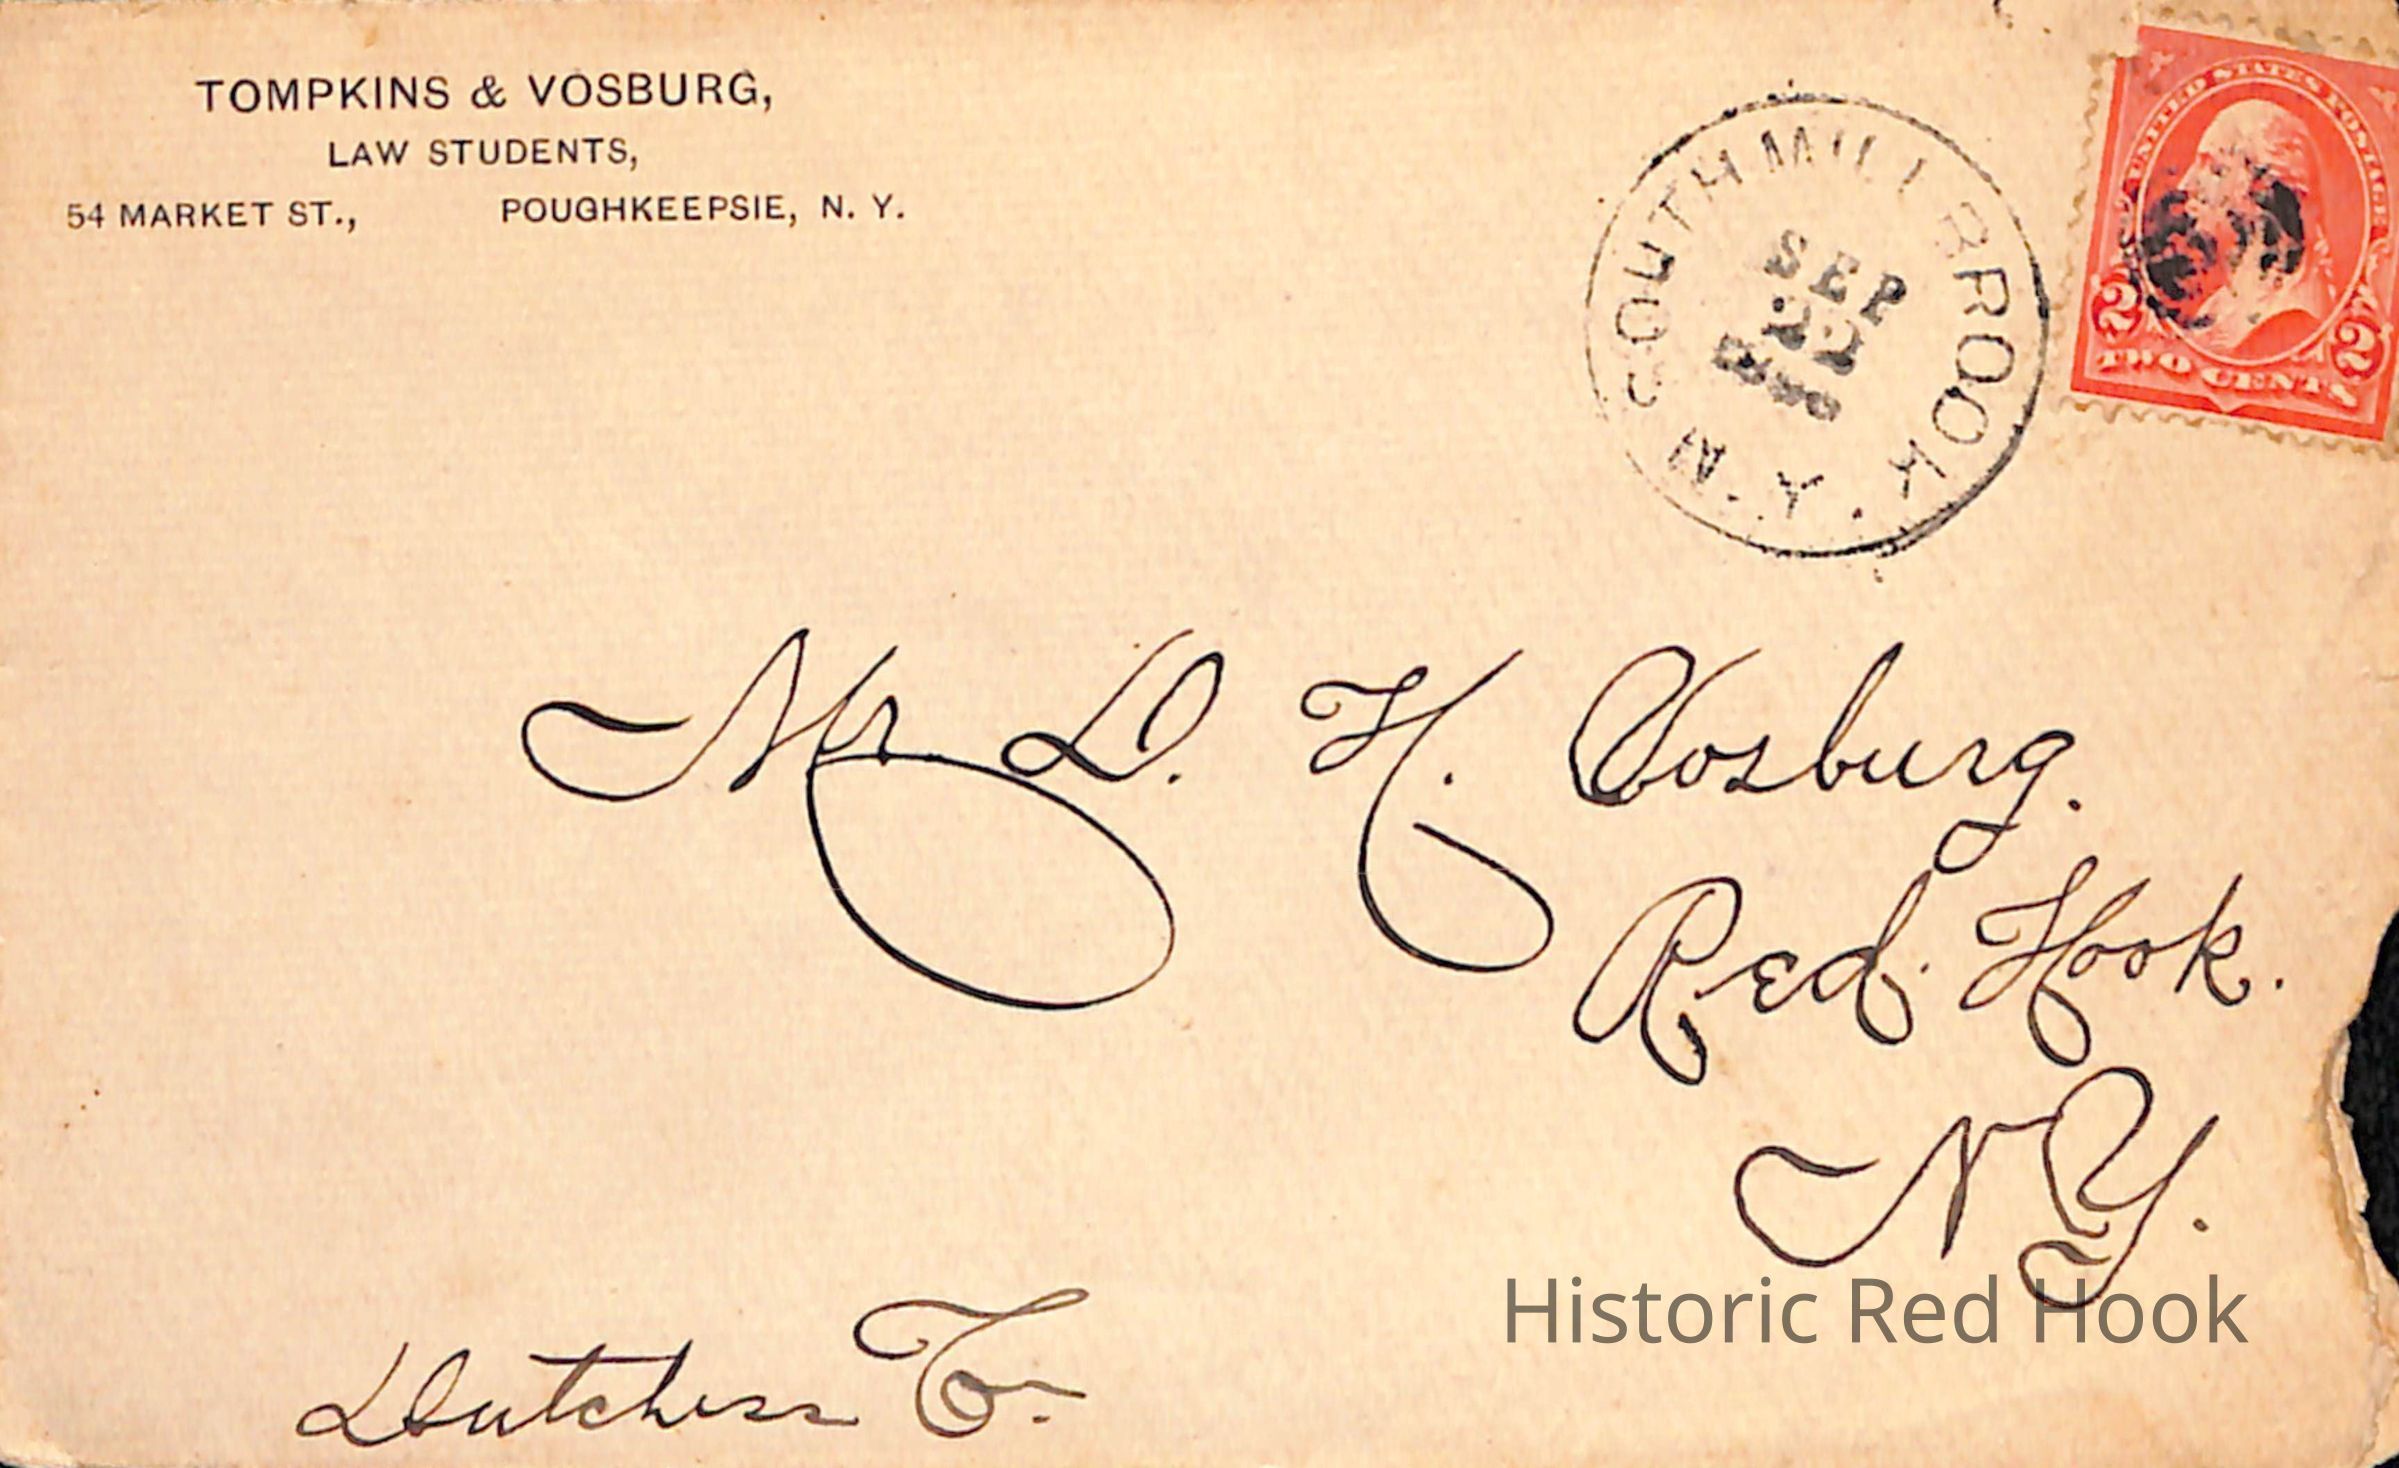 TOMPKINS & VOSBURG,
LAW STUDENTS,
54 MARKET ST., POUGHKEEPSIE, N. Y.
SOUTH MILLBROOK N.Y.
SEP
22
UNITED STATES POSTAGE
2 2
TWO CENTS
Mr D. H. Vosburg.
Red Hook.
N Y.
Dutchess Co.
Historic Red Hook